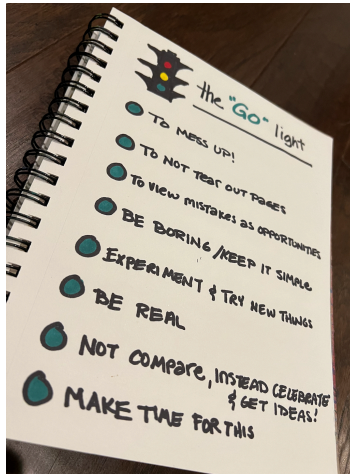 the "Go" light
To MESS UP!
To NOT TEAR OUT PAGES
To VIEW MISTAKES AS OPPORTUNITIES
BE BORING / KEEP IT SIMPLE
EXPERIMENT & TRY NEW THINGS
BE REAL
NOT COMPARE, INSTEAD CELEBRATE
& GET IDEAS!
MAKE TIME FOR THIS